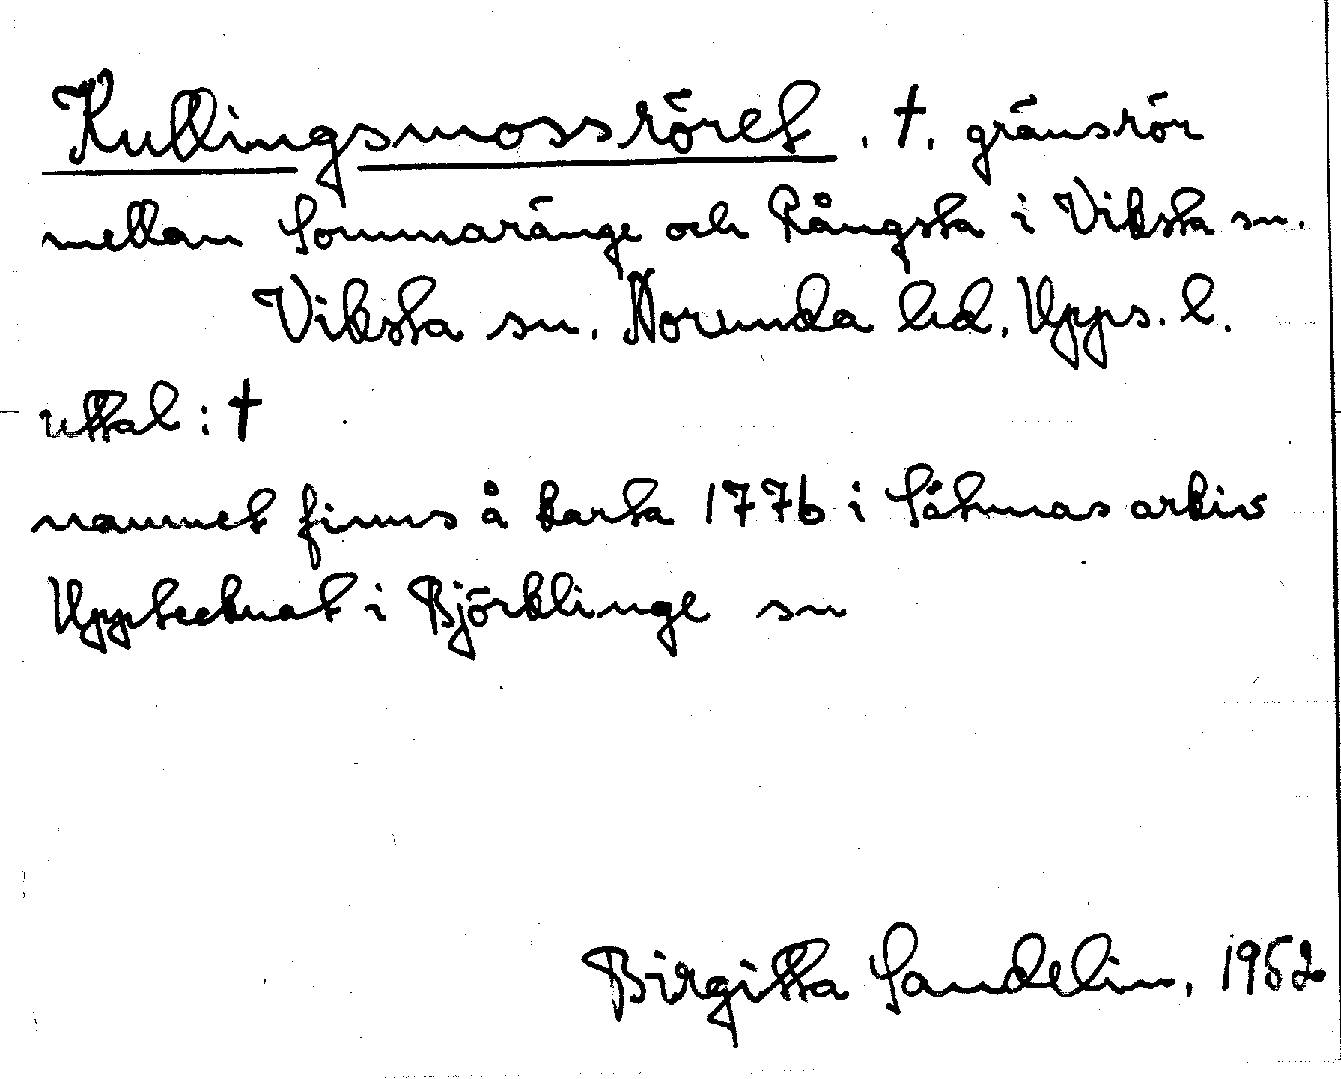 Kullingsmossröret, †, gränsrör
mellan Sommaränge och Rångsta i Viksta sn.
Viksta sn. Norunda hd, Upps. l.
uttal: †
namnet finns å karta 1776 i Sätunas arkiv
Upptecknat i Björklinge sn
Birgitta Sandelin, 1952